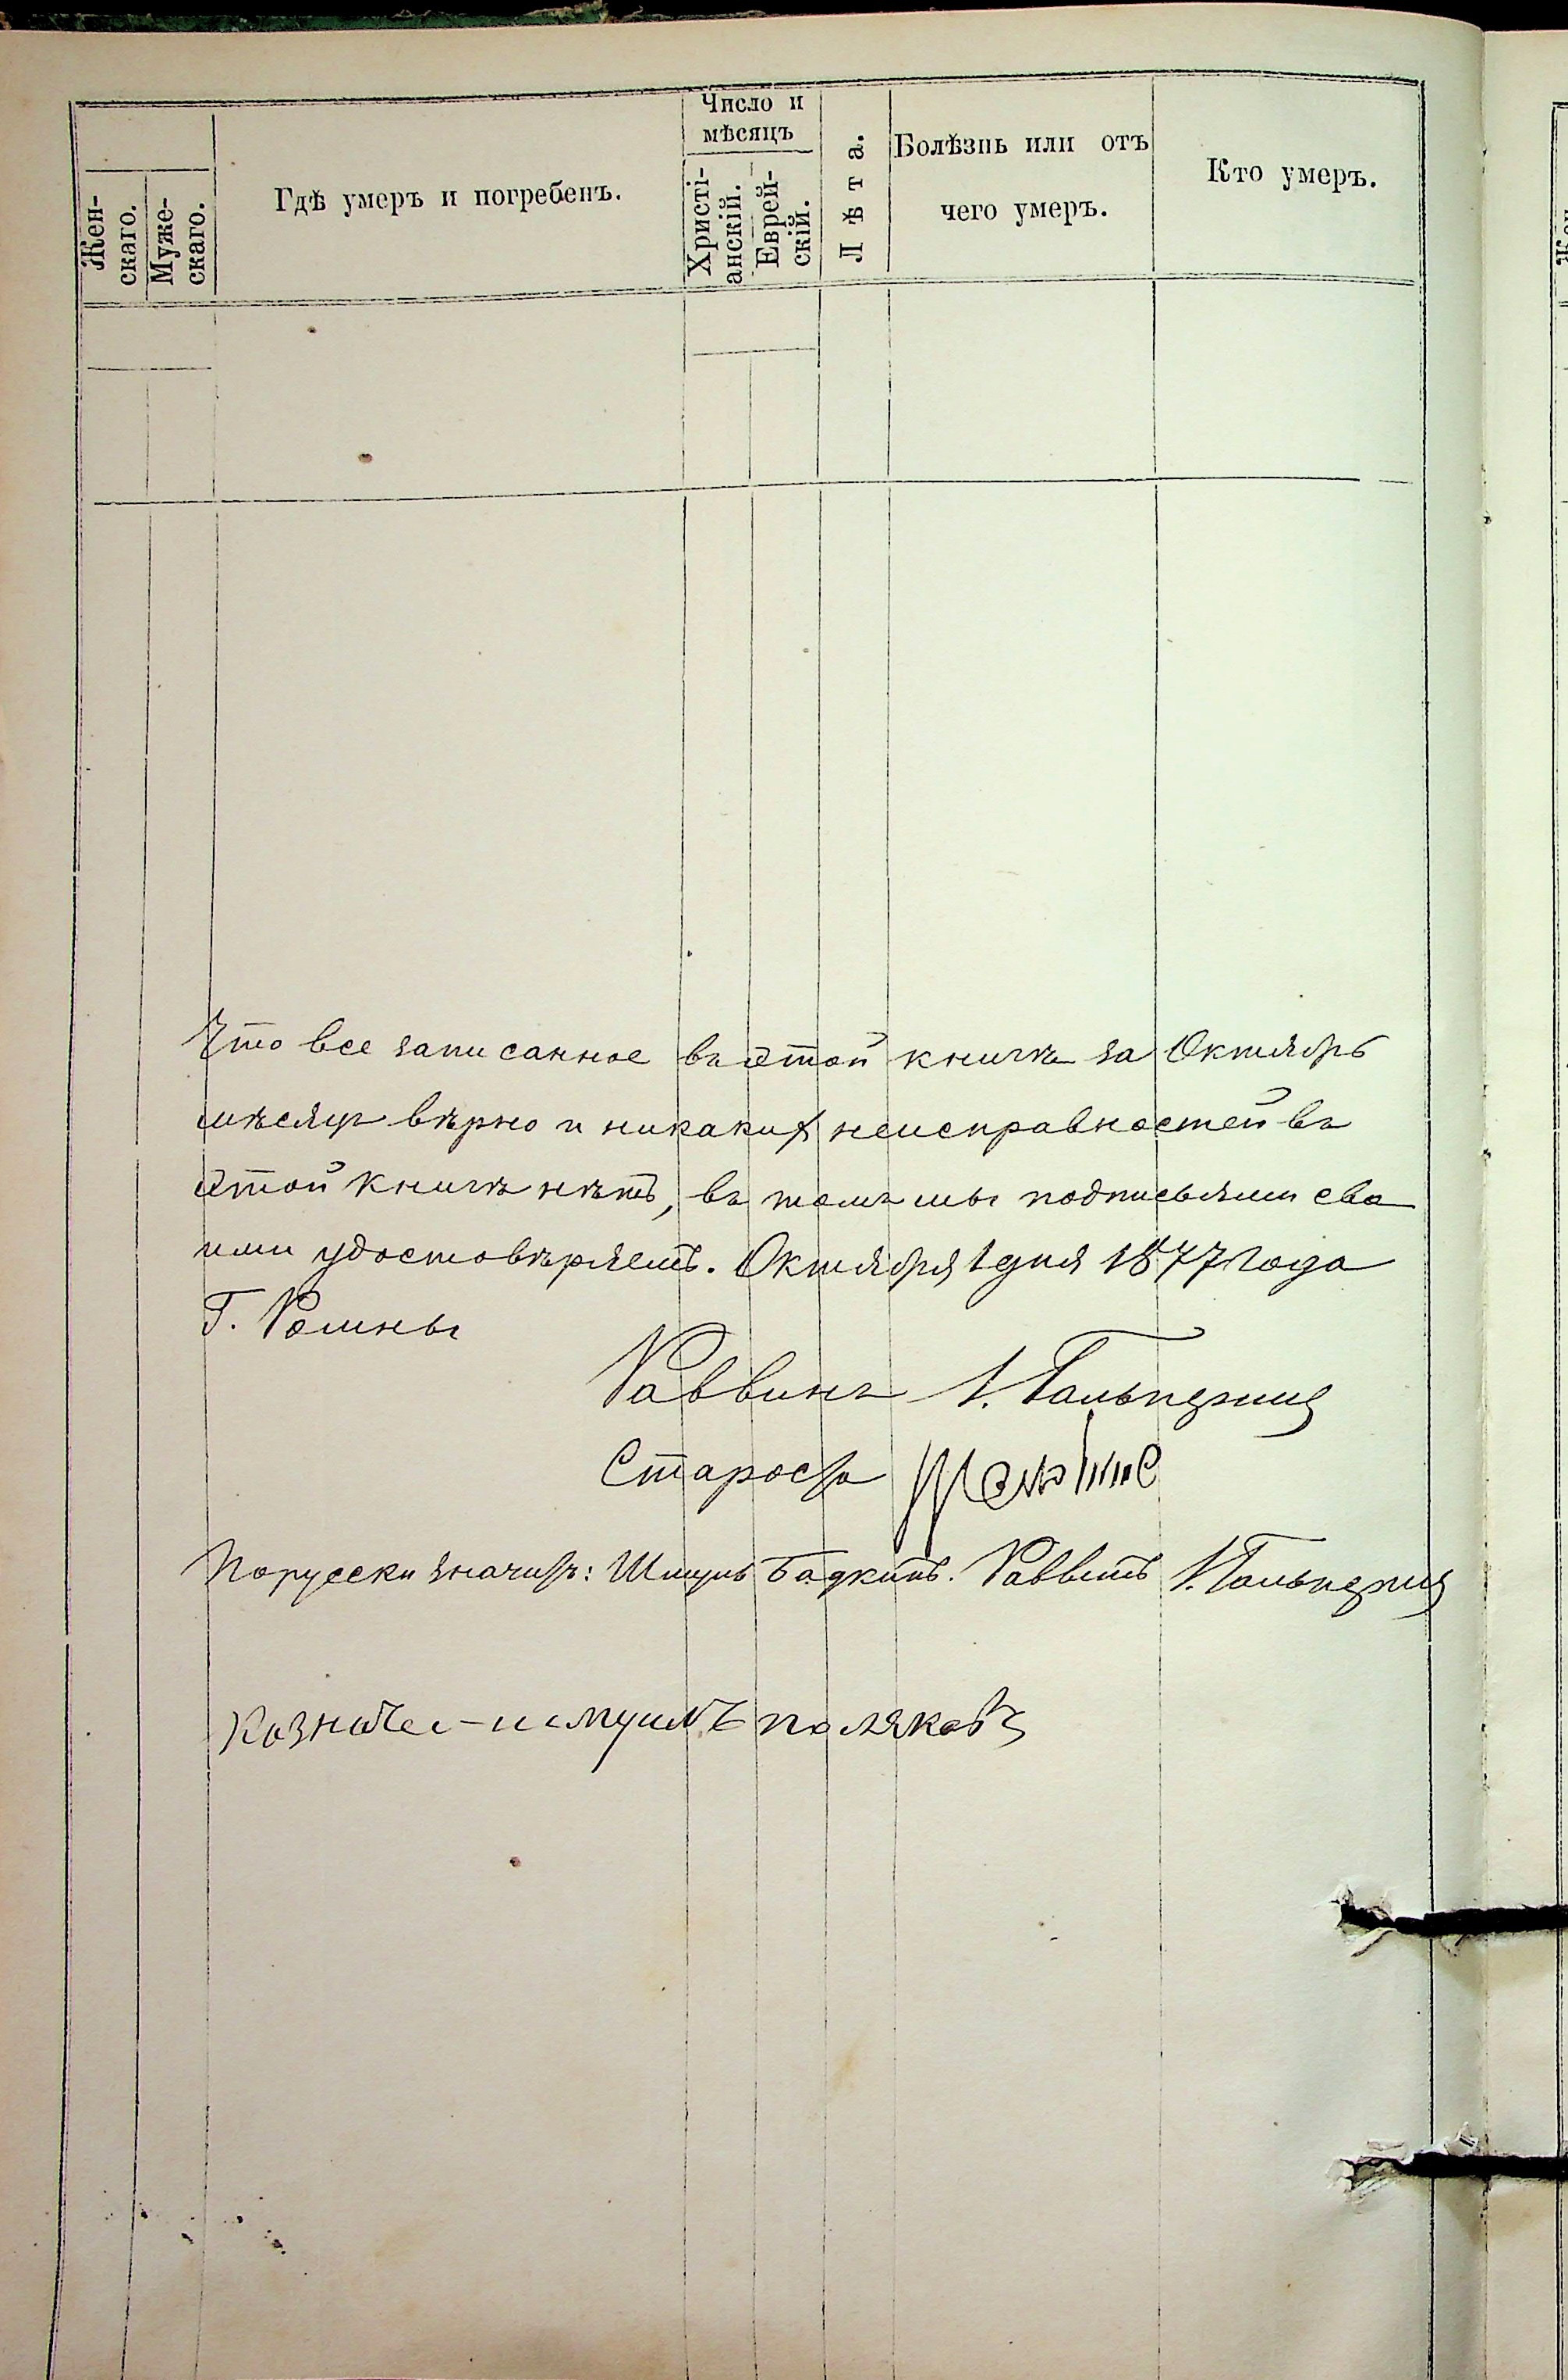 Число и
мѣсяцъ
Жен-
скаго.
Муже-
скаго.
Гдѣ умеръ и погребенъ.
Христі-
анскій.
Еврей-
скій.
Лѣта.
Болѣзнь или отъ
чего умеръ.
Кто умеръ.
Что все записанное въ этой книгѣ за Октябрь
мѣсяцъ вѣрно и никаких неисправностей въ
этой книгѣ нѣтъ, въ томъ мы подписьями сво
ими удостовѣряемъ. Октября 1 дня 1877 года
Г. Ромны
Раввинъ І. Гальперинъ
Староста
По русски значитъ: Шмуль Бадкинъ. Раввинъ І. Гальперинъ
Казначеі - поляковъ